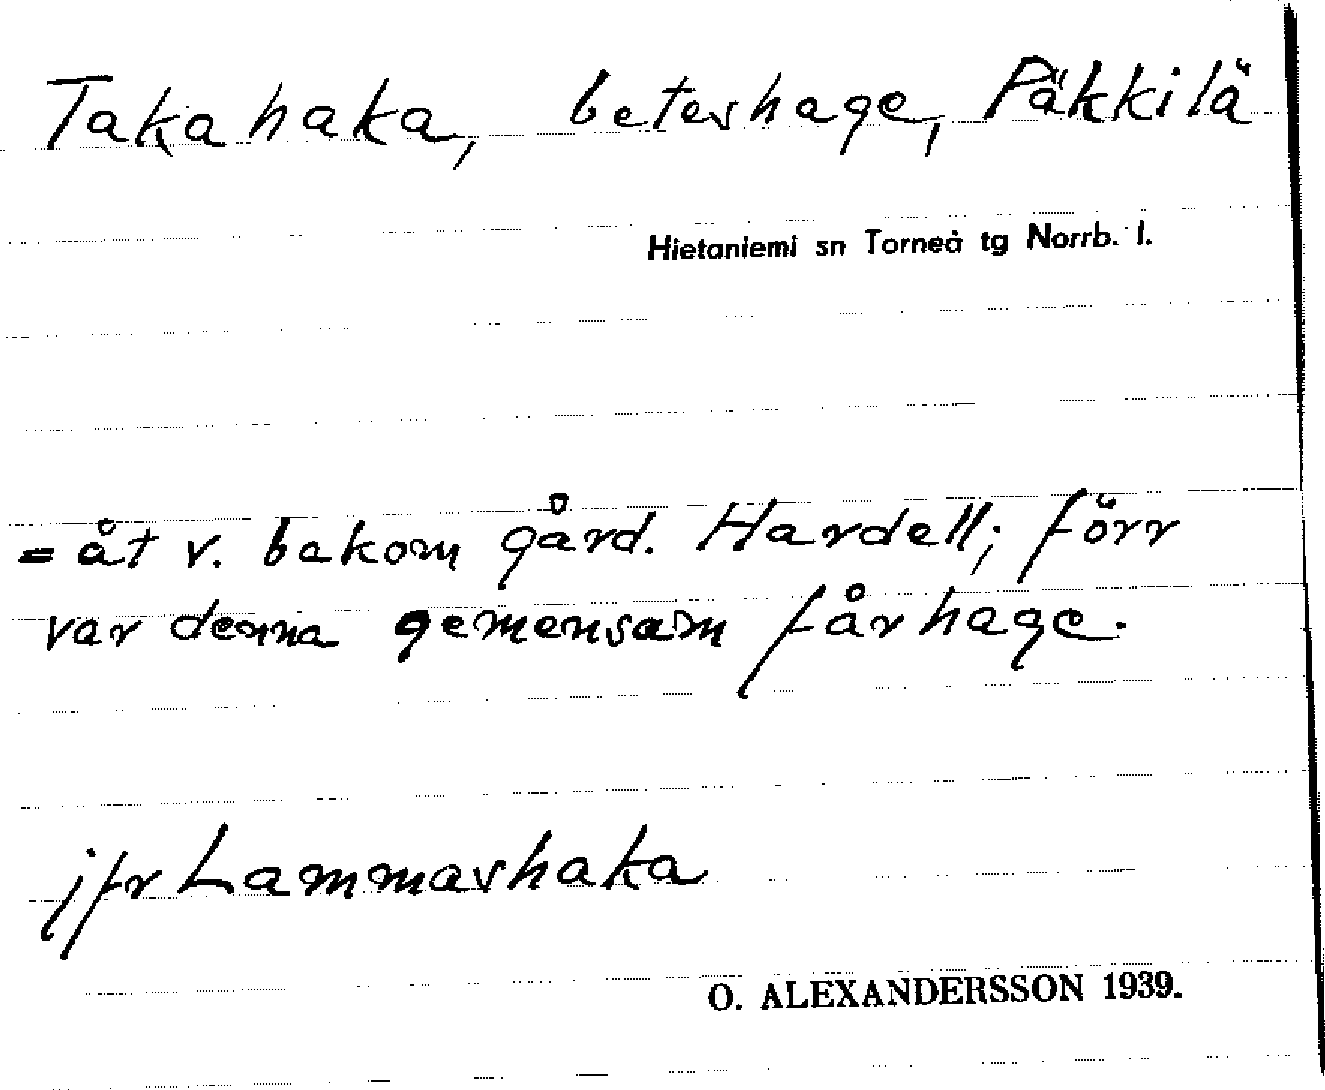 Takahaka, beteshage, Päkkilä
Hietaniemi sn Torneå tg Norrb. l.
= åt v. bakom gård. Hardell; förr
var denna gemensam fårhage.
jfr Lammashaka
O. ALEXANDERSSON 1939.